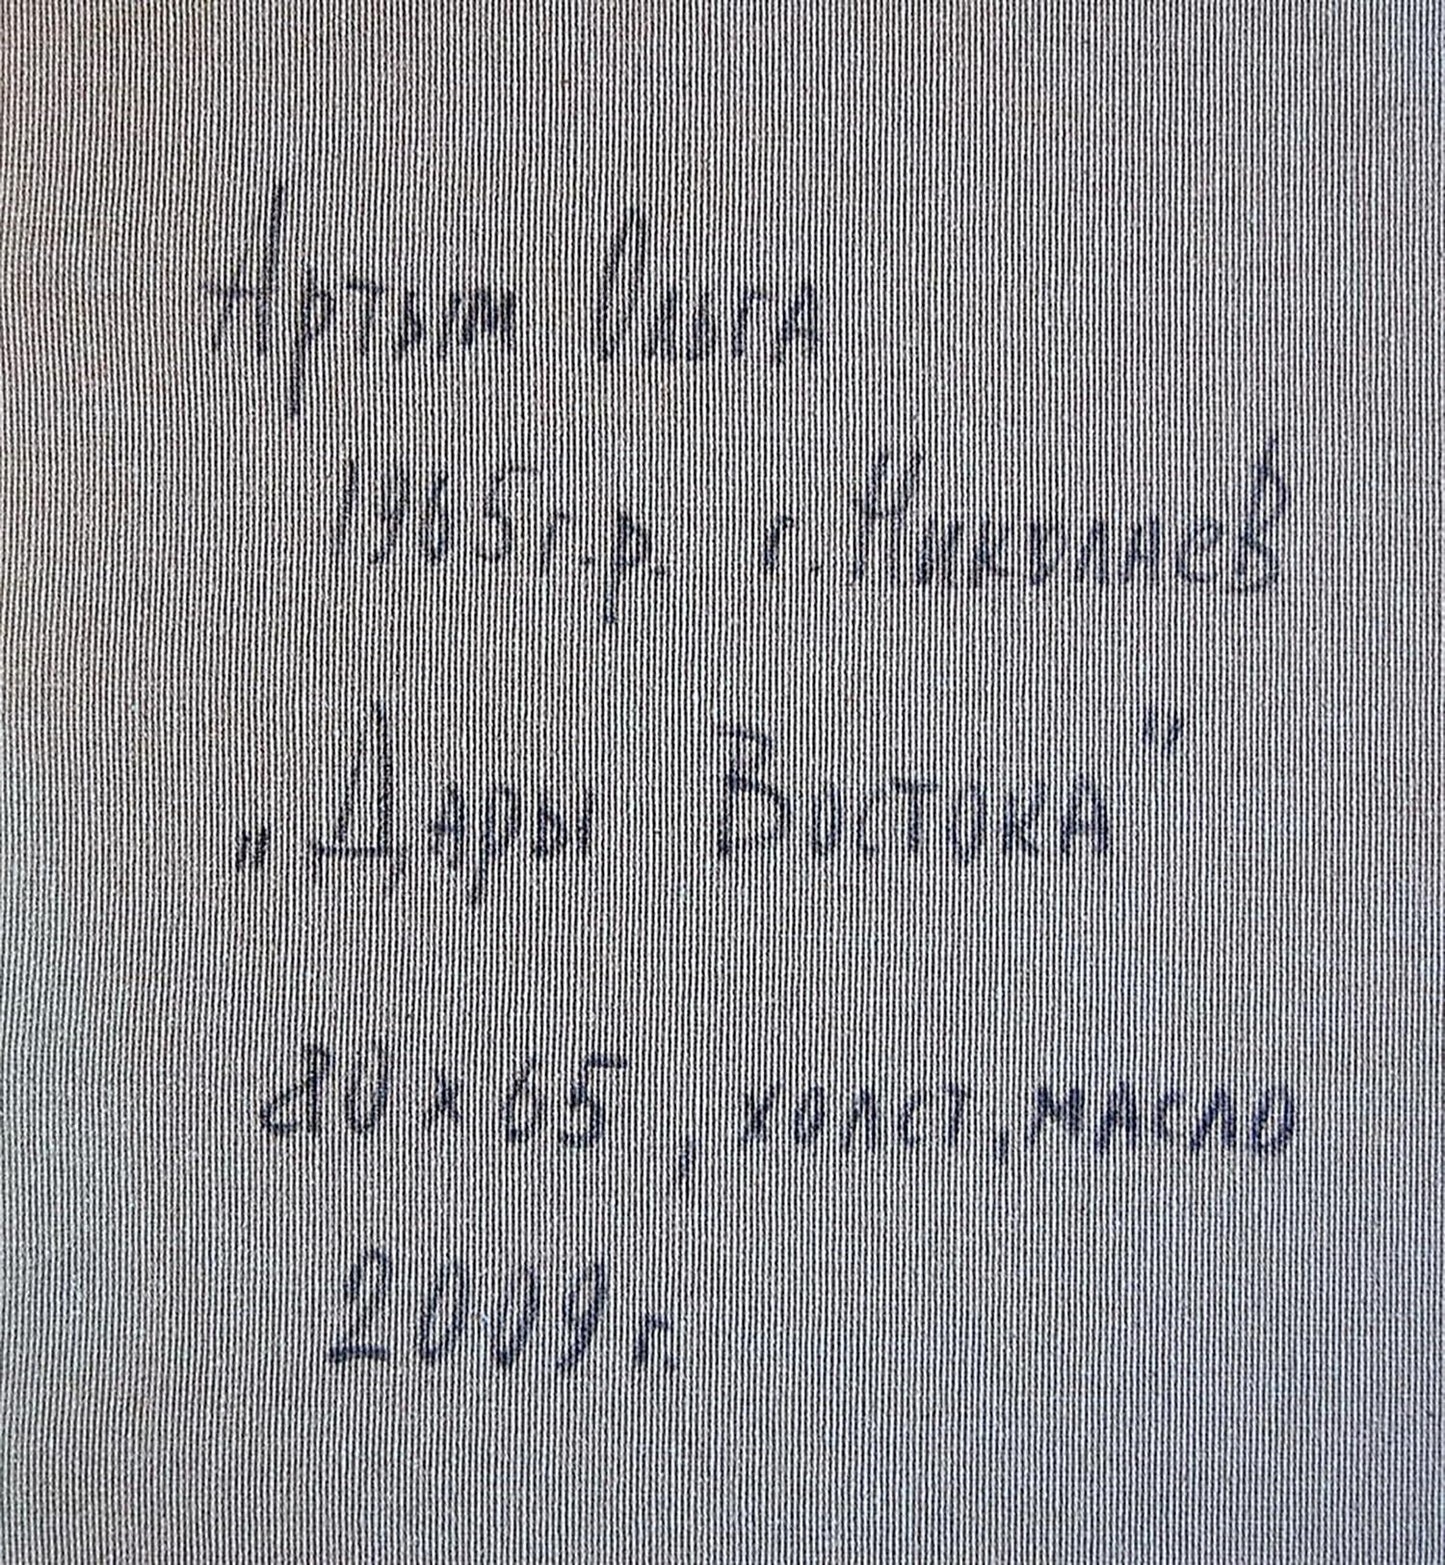 Артым Ольга
1965 г.р. г. Николаев
„Дары Востока"
80 x 65, холст, масло
2009 г.